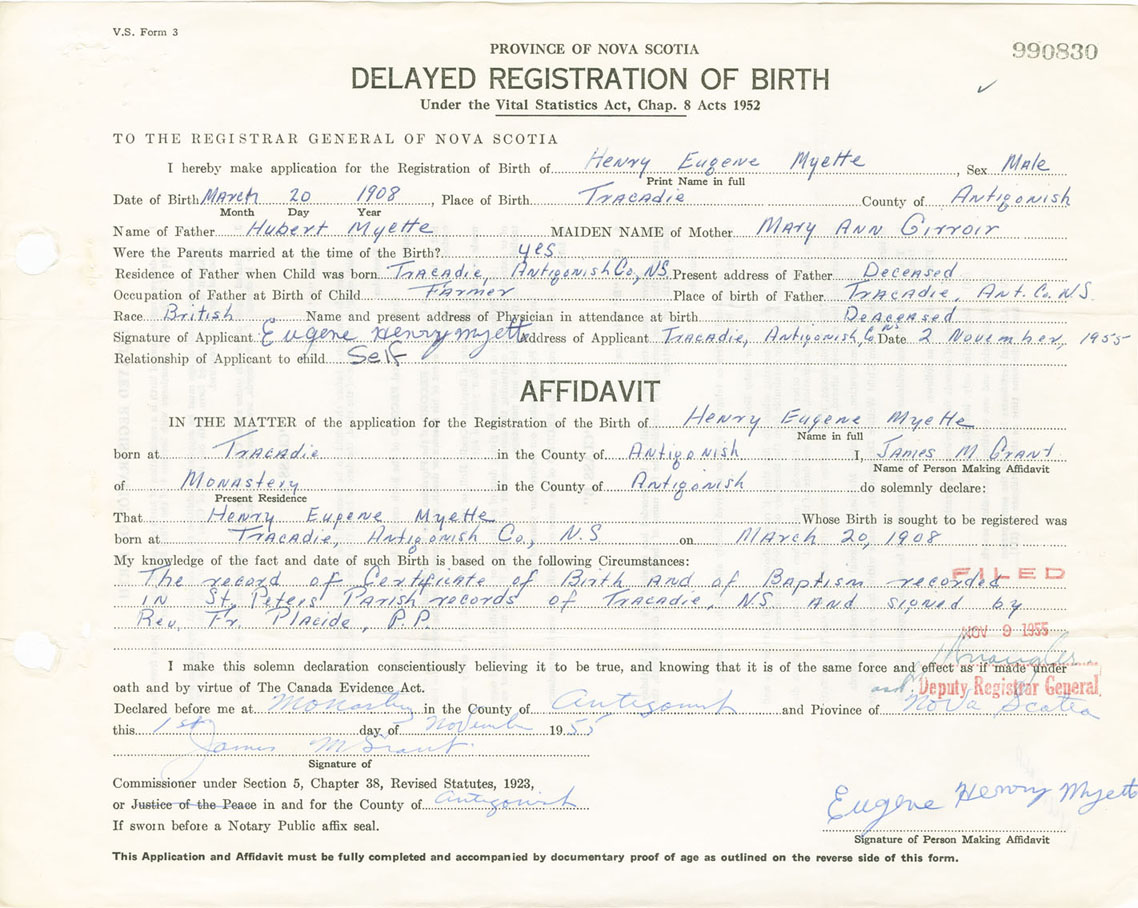 V.S. Form 3
990830
PROVINCE OF NOVA SCOTIA
DELAYED REGISTRATION OF BIRTH
Under the Vital Statistics Act, Chap. 8 Acts 1952
TO THE REGISTRAR GENERAL OF NOVA SCOTIA
I hereby make application for the Registration of Birth of Henry Eugene Myette, Sex Male
Print Name in full
Date of Birth March 20 1908, Place of Birth Tracadie County of Antigonish
Month Day Year
Name of Father Hubert Myette MAIDEN NAME of Mother Mary Ann Girroir
Were the Parents married at the time of the Birth? yes
Residence of Father when Child was born Tracadie, Antigonish Co, NS Present address of Father Deceased
Occupation of Father at Birth of Child Farmer Place of birth of Father Tracadie, Ant. Co. N.S.
Race British Name and present address of Physician in attendance at birth Deaceased
Signature of Applicant Eugene Henry Myette Address of Applicant Tracadie, Antigonish, Co NS Date 2 November, 1955
Relationship of Applicant to child Self
AFFIDAVIT
IN THE MATTER of the application for the Registration of the Birth of Henry Eugene Myette
Name in full
born at Tracadie in the County of Antigonish I, James M Grant
Name of Person Making Affidavit
of Monastery in the County of Antigonish do solemnly declare:
Present Residence
That Henry Eugene Myette Whose Birth is sought to be registered was
born at Tracadie, Antigonish Co., N.S on March 20, 1908
My knowledge of the fact and date of such Birth is based on the following Circumstances:
The record of Certificate of Birth and of Baptism recorded
FILED
in St. Peters Parish records of Tracadie, N.S. and signed by
Rev. Fr. Placide, P.P.
NOV 9 1955
I make this solemn declaration conscientiously believing it to be true, and knowing that it is of the same force and effect as if made under
oath and by virtue of The Canada Evidence Act.
Deputy Registrar General
Declared before me at in the County of Antigonish and Province of Nova Scotia
this 1st day of November 1955
James M Grant
Signature of
Commissioner under Section 5, Chapter 38, Revised Statutes, 1923,
or Justice of the Peace in and for the County of Antigonish
If sworn before a Notary Public affix seal.
Eugene Henry Myette
Signature of Person Making Affidavit
This Application and Affidavit must be fully completed and accompanied by documentary proof of age as outlined on the reverse side of this form.